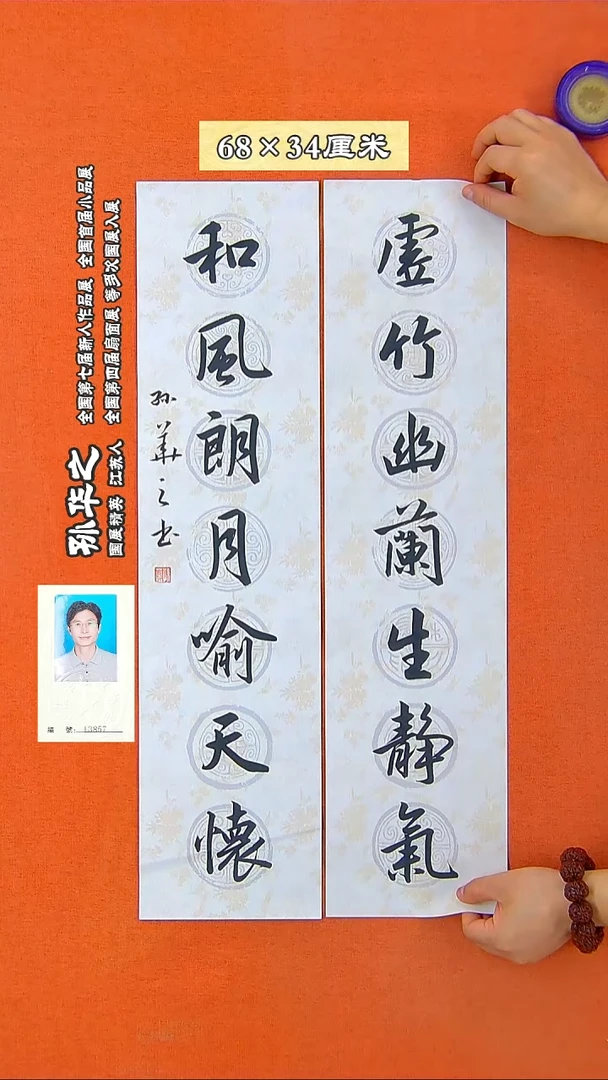 68×34厘米
虚竹幽蘭生靜氣
和風朗月喻天懷
孙華之书
孙华之
国展精英 江苏人
全国第七届新人作品展 全国首届小品展
全国第四届扇面展 等多次国展入展
编 號: 13867